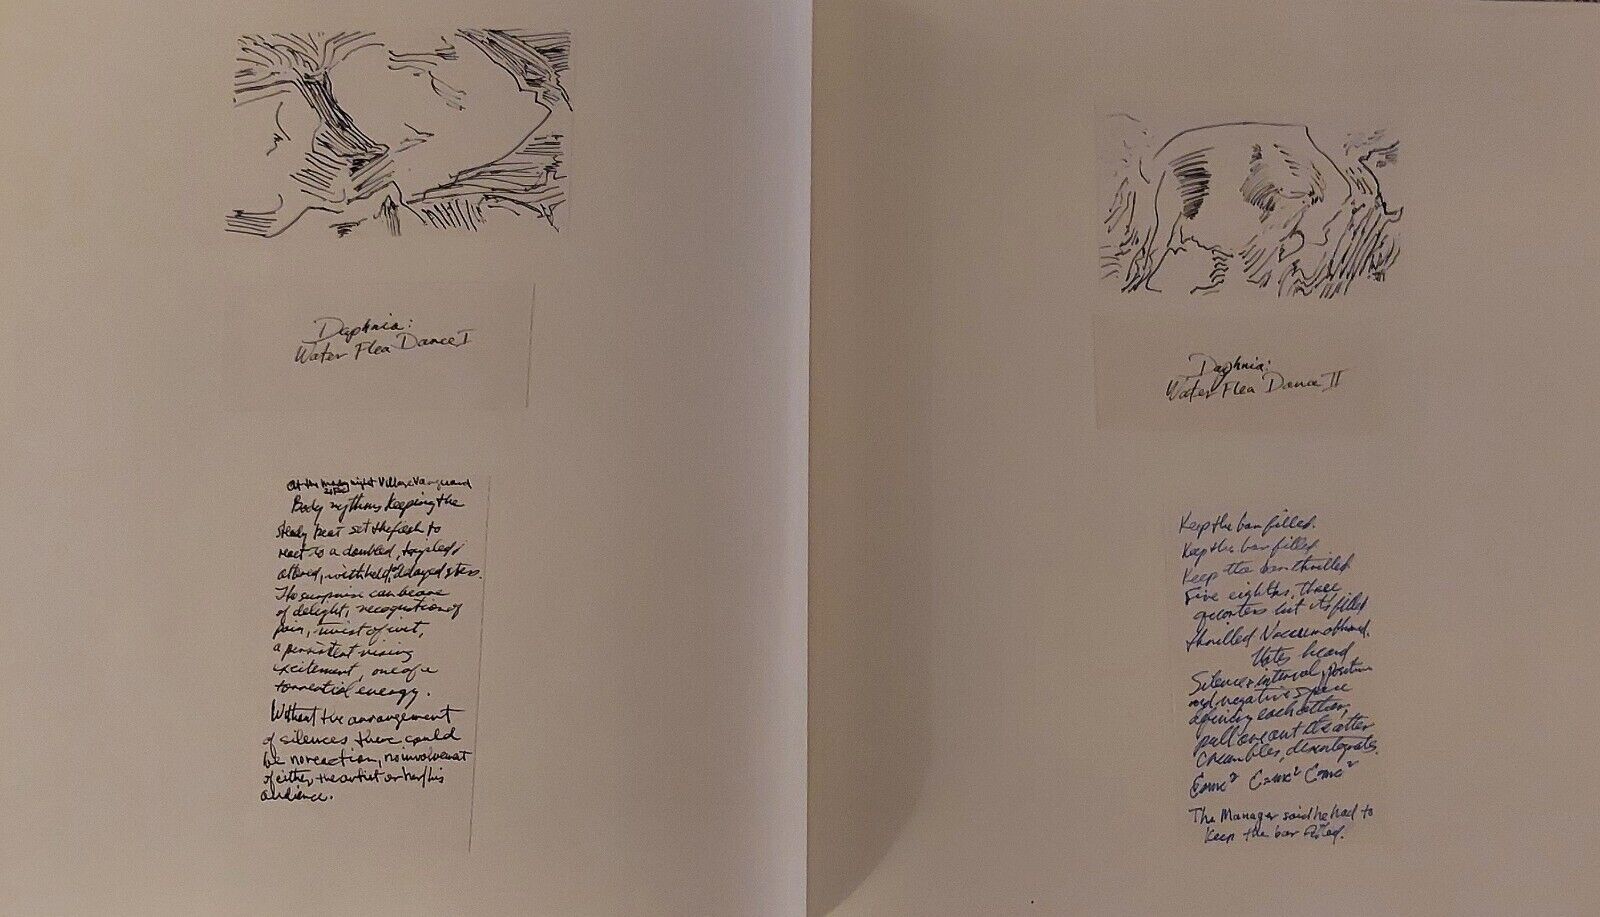 Daphnia:
Water Flea Dance I
At the night Village Vanguard
Body rythms keeping the
steady beat set the flesh to
react to a doubled, tripled,
altered, withheld, or delayed step.
The surprise can be one
of delight, recognition of
pain, twist of wit,
a persistent rising
excitement, one of a
torrential energy.
Without the arrangement
of silences there could
be no reaction, no involvement
of either the artist or her/his
audience.
Daphnia:
Water Flea Dance II
Keep the bar filled.
Keep the bar filled.
Keep the bar thrilled
Five eighths, three
quarters but its filled
thrilled
heard
Silence interval, positive
and negative space
defining each other,
pull one out the other
crumbles, disintegrates.
E=mc² E=mc² E=mc²
The Manager said he had to
Keep the bar filled.